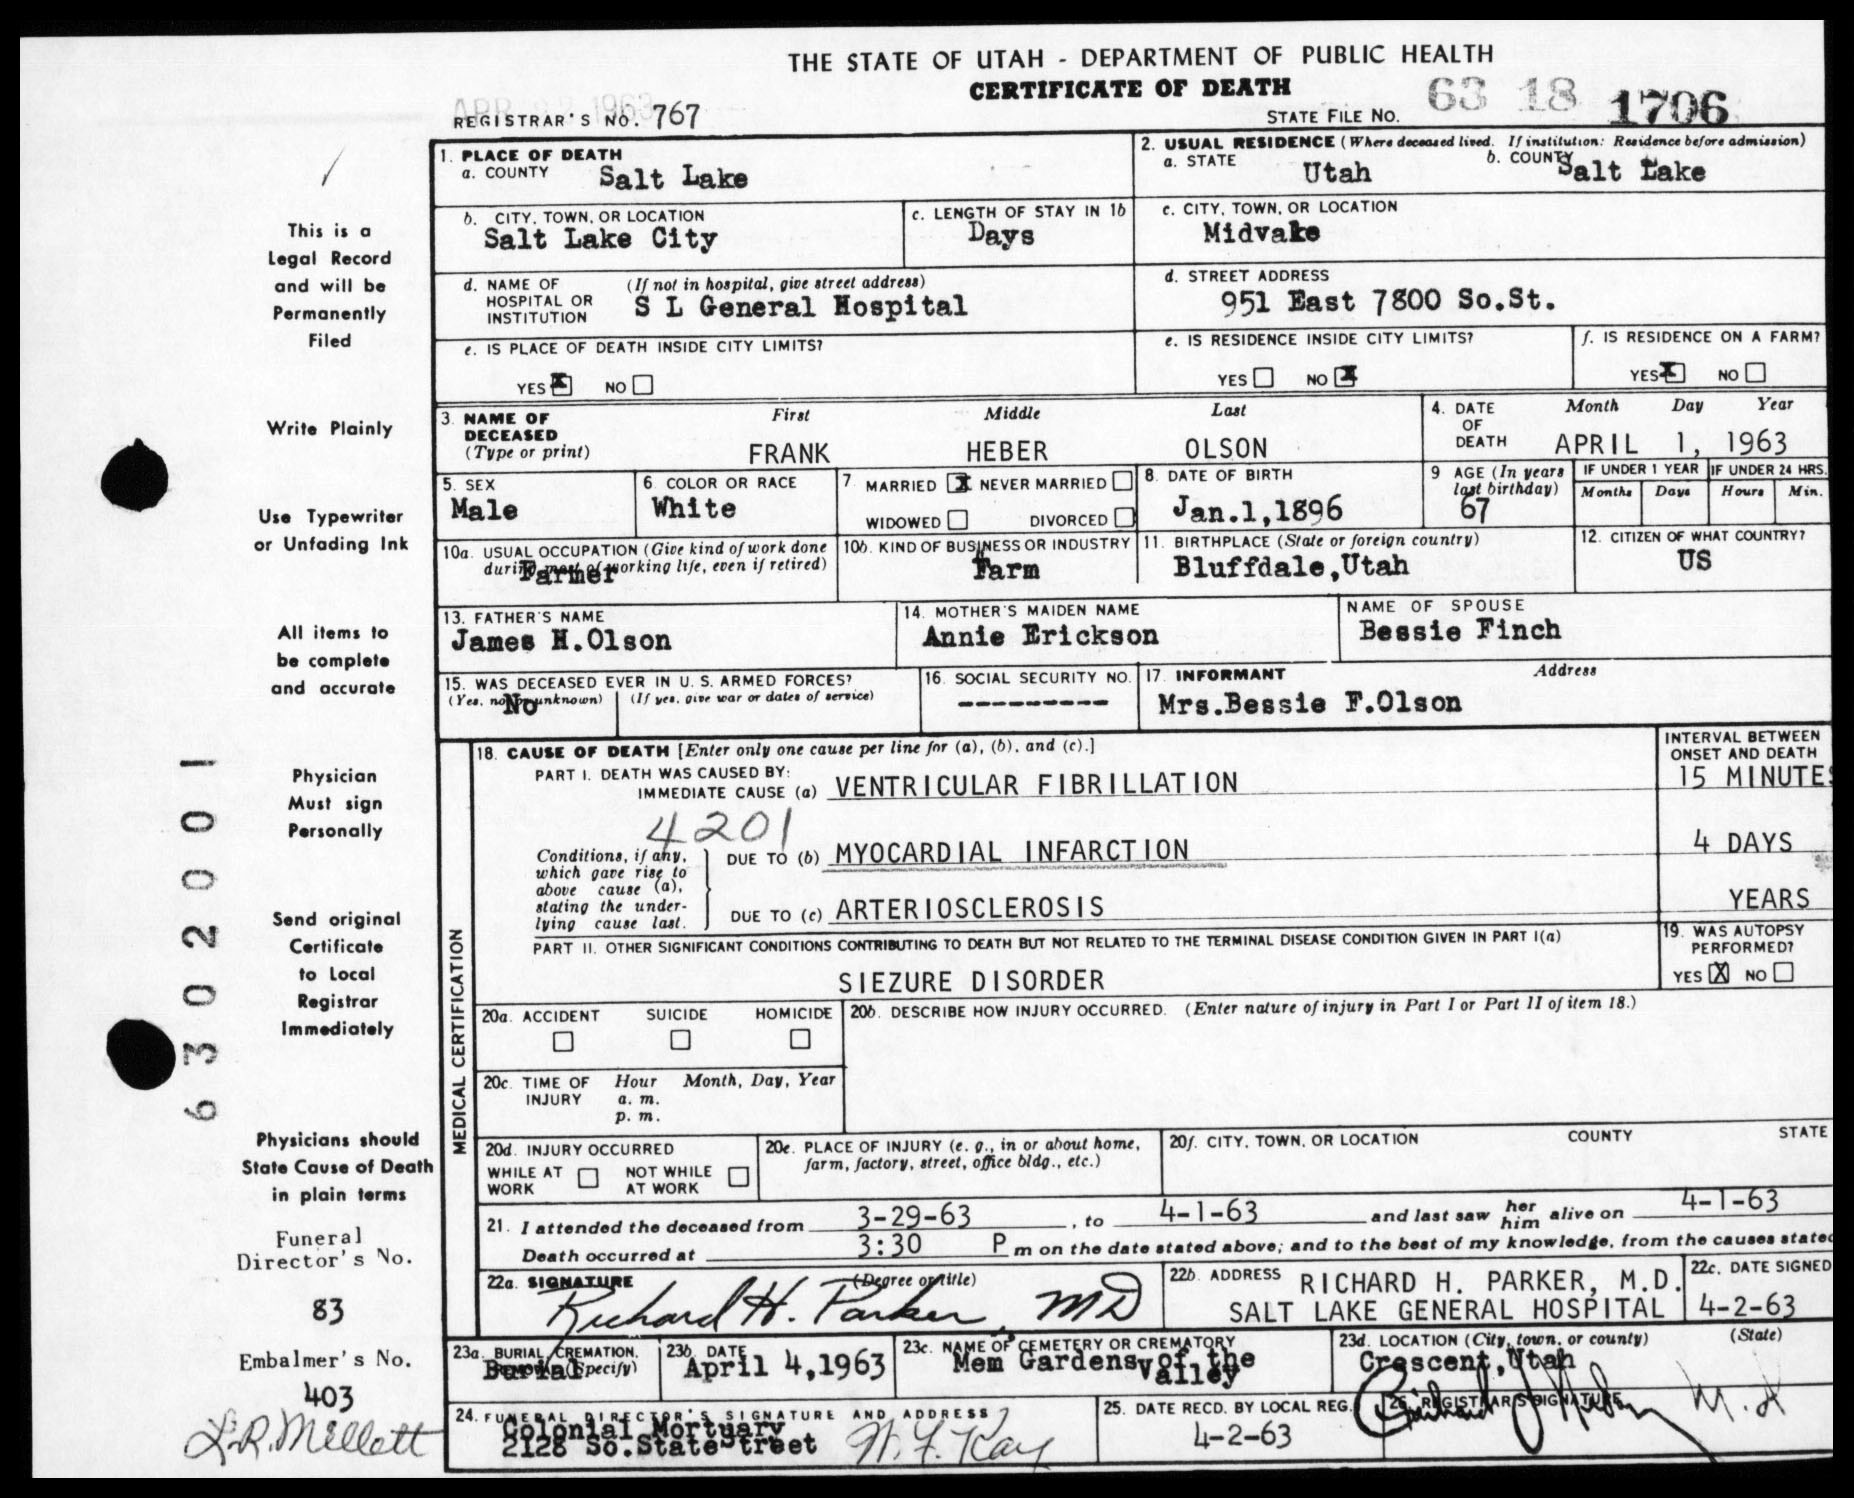 THE STATE OF UTAH - DEPARTMENT OF PUBLIC HEALTH
CERTIFICATE OF DEATH
APR 1963
REGISTRAR'S NO. 767
STATE FILE NO. 63 18 1706
This is a
Legal Record
and will be
Permanently
Filed
Write Plainly
Use Typewriter
or Unfading Ink
All items to
be complete
and accurate
Physician
Must sign
Personally
Send original
Certificate
to Local
Registrar
Immediately
Physicians should
State Cause of Death
in plain terms
Funeral
Director's No.
83
Embalmer's No.
403
L.R. Millett
630200 1
1. PLACE OF DEATH
a. COUNTY Salt Lake
2. USUAL RESIDENCE (Where deceased lived. If institution: Residence before admission)
a. STATE Utah b. COUNTY Salt Lake
b. CITY, TOWN, OR LOCATION
Salt Lake City
c. LENGTH OF STAY IN 1b
Days
c. CITY, TOWN, OR LOCATION
Midvale
d. NAME OF HOSPITAL OR INSTITUTION (If not in hospital, give street address)
S L General Hospital
d. STREET ADDRESS
951 East 7800 So.St.
e. IS PLACE OF DEATH INSIDE CITY LIMITS?
YES X NO
e. IS RESIDENCE INSIDE CITY LIMITS?
YES NO X
f. IS RESIDENCE ON A FARM?
YES X NO
3. NAME OF DECEASED (Type or print)
First Middle Last
FRANK HEBER OLSON
4. DATE OF DEATH
Month Day Year
APRIL 1, 1963
5. SEX
Male
6. COLOR OR RACE
White
7. MARRIED X NEVER MARRIED
WIDOWED DIVORCED
8. DATE OF BIRTH
Jan.1,1896
9 AGE (In years last birthday)
67
IF UNDER 1 YEAR
Months Days
IF UNDER 24 HRS.
Hours Min.
10a. USUAL OCCUPATION (Give kind of work done
during most of working life, even if retired)
Farmer
10b. KIND OF BUSINESS OR INDUSTRY
Farm
11. BIRTHPLACE (State or foreign country)
Bluffdale,Utah
12. CITIZEN OF WHAT COUNTRY?
US
13. FATHER'S NAME
James H.Olson
14. MOTHER'S MAIDEN NAME
Annie Erickson
NAME OF SPOUSE
Bessie Finch
15. WAS DECEASED EVER IN U. S. ARMED FORCES?
(Yes, no, or unknown) (If yes, give war or dates of service)
No
16. SOCIAL SECURITY NO.
---------
17. INFORMANT Address
Mrs.Bessie F.Olson
MEDICAL CERTIFICATION
18. CAUSE OF DEATH [Enter only one cause per line for (a), (b), and (c).]
INTERVAL BETWEEN
ONSET AND DEATH
PART I. DEATH WAS CAUSED BY:
IMMEDIATE CAUSE (a) VENTRICULAR FIBRILLATION 15 MINUTES
4201
Conditions, if any,
which gave rise to
above cause (a),
stating the under-
lying cause last.
DUE TO (b) MYOCARDIAL INFARCTION 4 DAYS
DUE TO (c) ARTERIOSCLEROSIS YEARS
PART II. OTHER SIGNIFICANT CONDITIONS CONTRIBUTING TO DEATH BUT NOT RELATED TO THE TERMINAL DISEASE CONDITION GIVEN IN PART I(a)
SIEZURE DISORDER
19. WAS AUTOPSY
PERFORMED?
YES X NO
20a. ACCIDENT SUICIDE HOMICIDE
20b. DESCRIBE HOW INJURY OCCURRED. (Enter nature of injury in Part I or Part II of item 18.)
20c. TIME OF INJURY
Hour Month, Day, Year
a. m.
p. m.
20d. INJURY OCCURRED
WHILE AT WORK NOT WHILE AT WORK
20e. PLACE OF INJURY (e. g., in or about home,
farm, factory, street, office bldg., etc.)
20f. CITY, TOWN, OR LOCATION COUNTY STATE
21. I attended the deceased from 3-29-63, to 4-1-63 and last saw her him alive on 4-1-63
Death occurred at 3:30 P m on the date stated above; and to the best of my knowledge, from the causes stated
22a. SIGNATURE (Degree or title)
Richard H. Parker, MD
22b. ADDRESS RICHARD H. PARKER, M.D.
SALT LAKE GENERAL HOSPITAL
22c. DATE SIGNED
4-2-63
23a. BURIAL, CREMATION,
REMOVAL (Specify)
Burial
23b. DATE
April 4,1963
23c. NAME OF CEMETERY OR CREMATORY
Mem Gardens of the
Valley
23d. LOCATION (City, town, or county) (State)
Crescent,Utah
24. FUNERAL DIRECTOR'S SIGNATURE AND ADDRESS
Colonial Mortuary
2128 So.State Street
W. F. Kay
25. DATE RECD. BY LOCAL REG.
4-2-63
26. REGISTRAR'S SIGNATURE